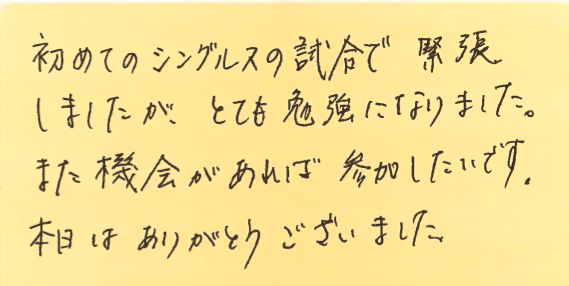 初めてのシングルスの試合で 緊張
しましたが、とても勉強になりました。
また機会があれば 参加したいです。
本日は ありがとう ございました。